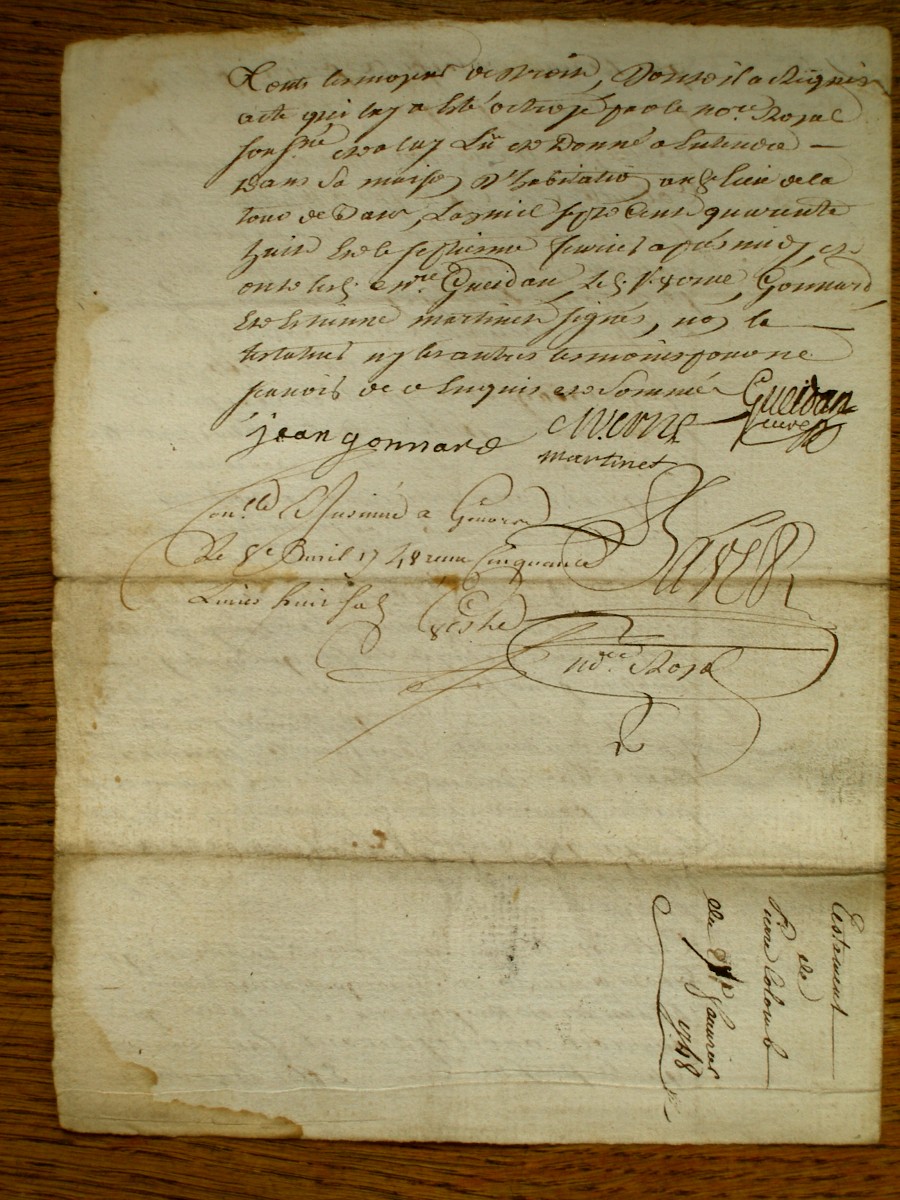 Toute les moyens de droit, Dont il a Requis
acte qui luy a Esté octroyé par le no.re Royal
sous.né et a luy Lû et Donné a Entendre —
Dans sa maison D'habitation au lieu de la
tour de          L'an mil sept Cent quarante
huit Et le septieme Janvier apres midy et
ont          Gueidan, Le S.r Verne, Gonnard,
Et Estienne martinet signés, non le
testateur ny les autres tesmoins pour ne
scavoir de ce Enquis et Sommés
Gueidan
curé
jean gonnard    Verne
martinet
Con.llé & Insinué a
Le 8e Avril 1748 reçu Cinquante
Livres huit sols

no.re Royal
Testament
de
Pierre Colomb
du 7e Janvier
1748